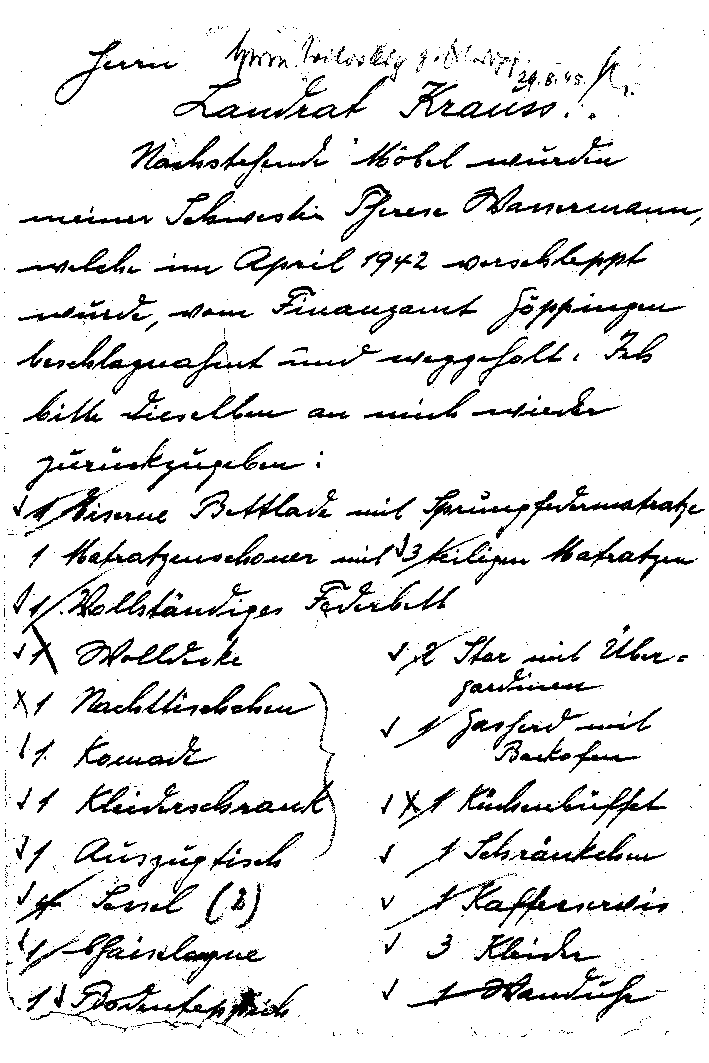 Herrn
29.8.45.
Landrat Krauss.
Nachstehende Möbel wurden
meiner Schwester Therese Wassermann,
welche im April 1942 verschleppt
wurde, vom Finanzamt Göppingen
beschlagnahmt und weggeholt. Ich
bitte dieselben an mich wieder
zurückzugeben:
1 Eiserne Bettlade mit Sprungfedermatratze
1 Matratzenschoner mit 3 teiligen Matratzen
1 Vollständiges Federbett
1 Wolldecke
1 Nachttischchen
1 Komode
1 Kleiderschrank
1 Auszugtisch
Sessel (2)
1 Chaiselogue
1 Bodenteppich
2 Stor mit Über-
gardinen
1 Gasherd mit
Backofen
1 Küchenbüffet
1 Schränkchen
1 Kaffeeservis
3 Kleider
1 Wanduhr